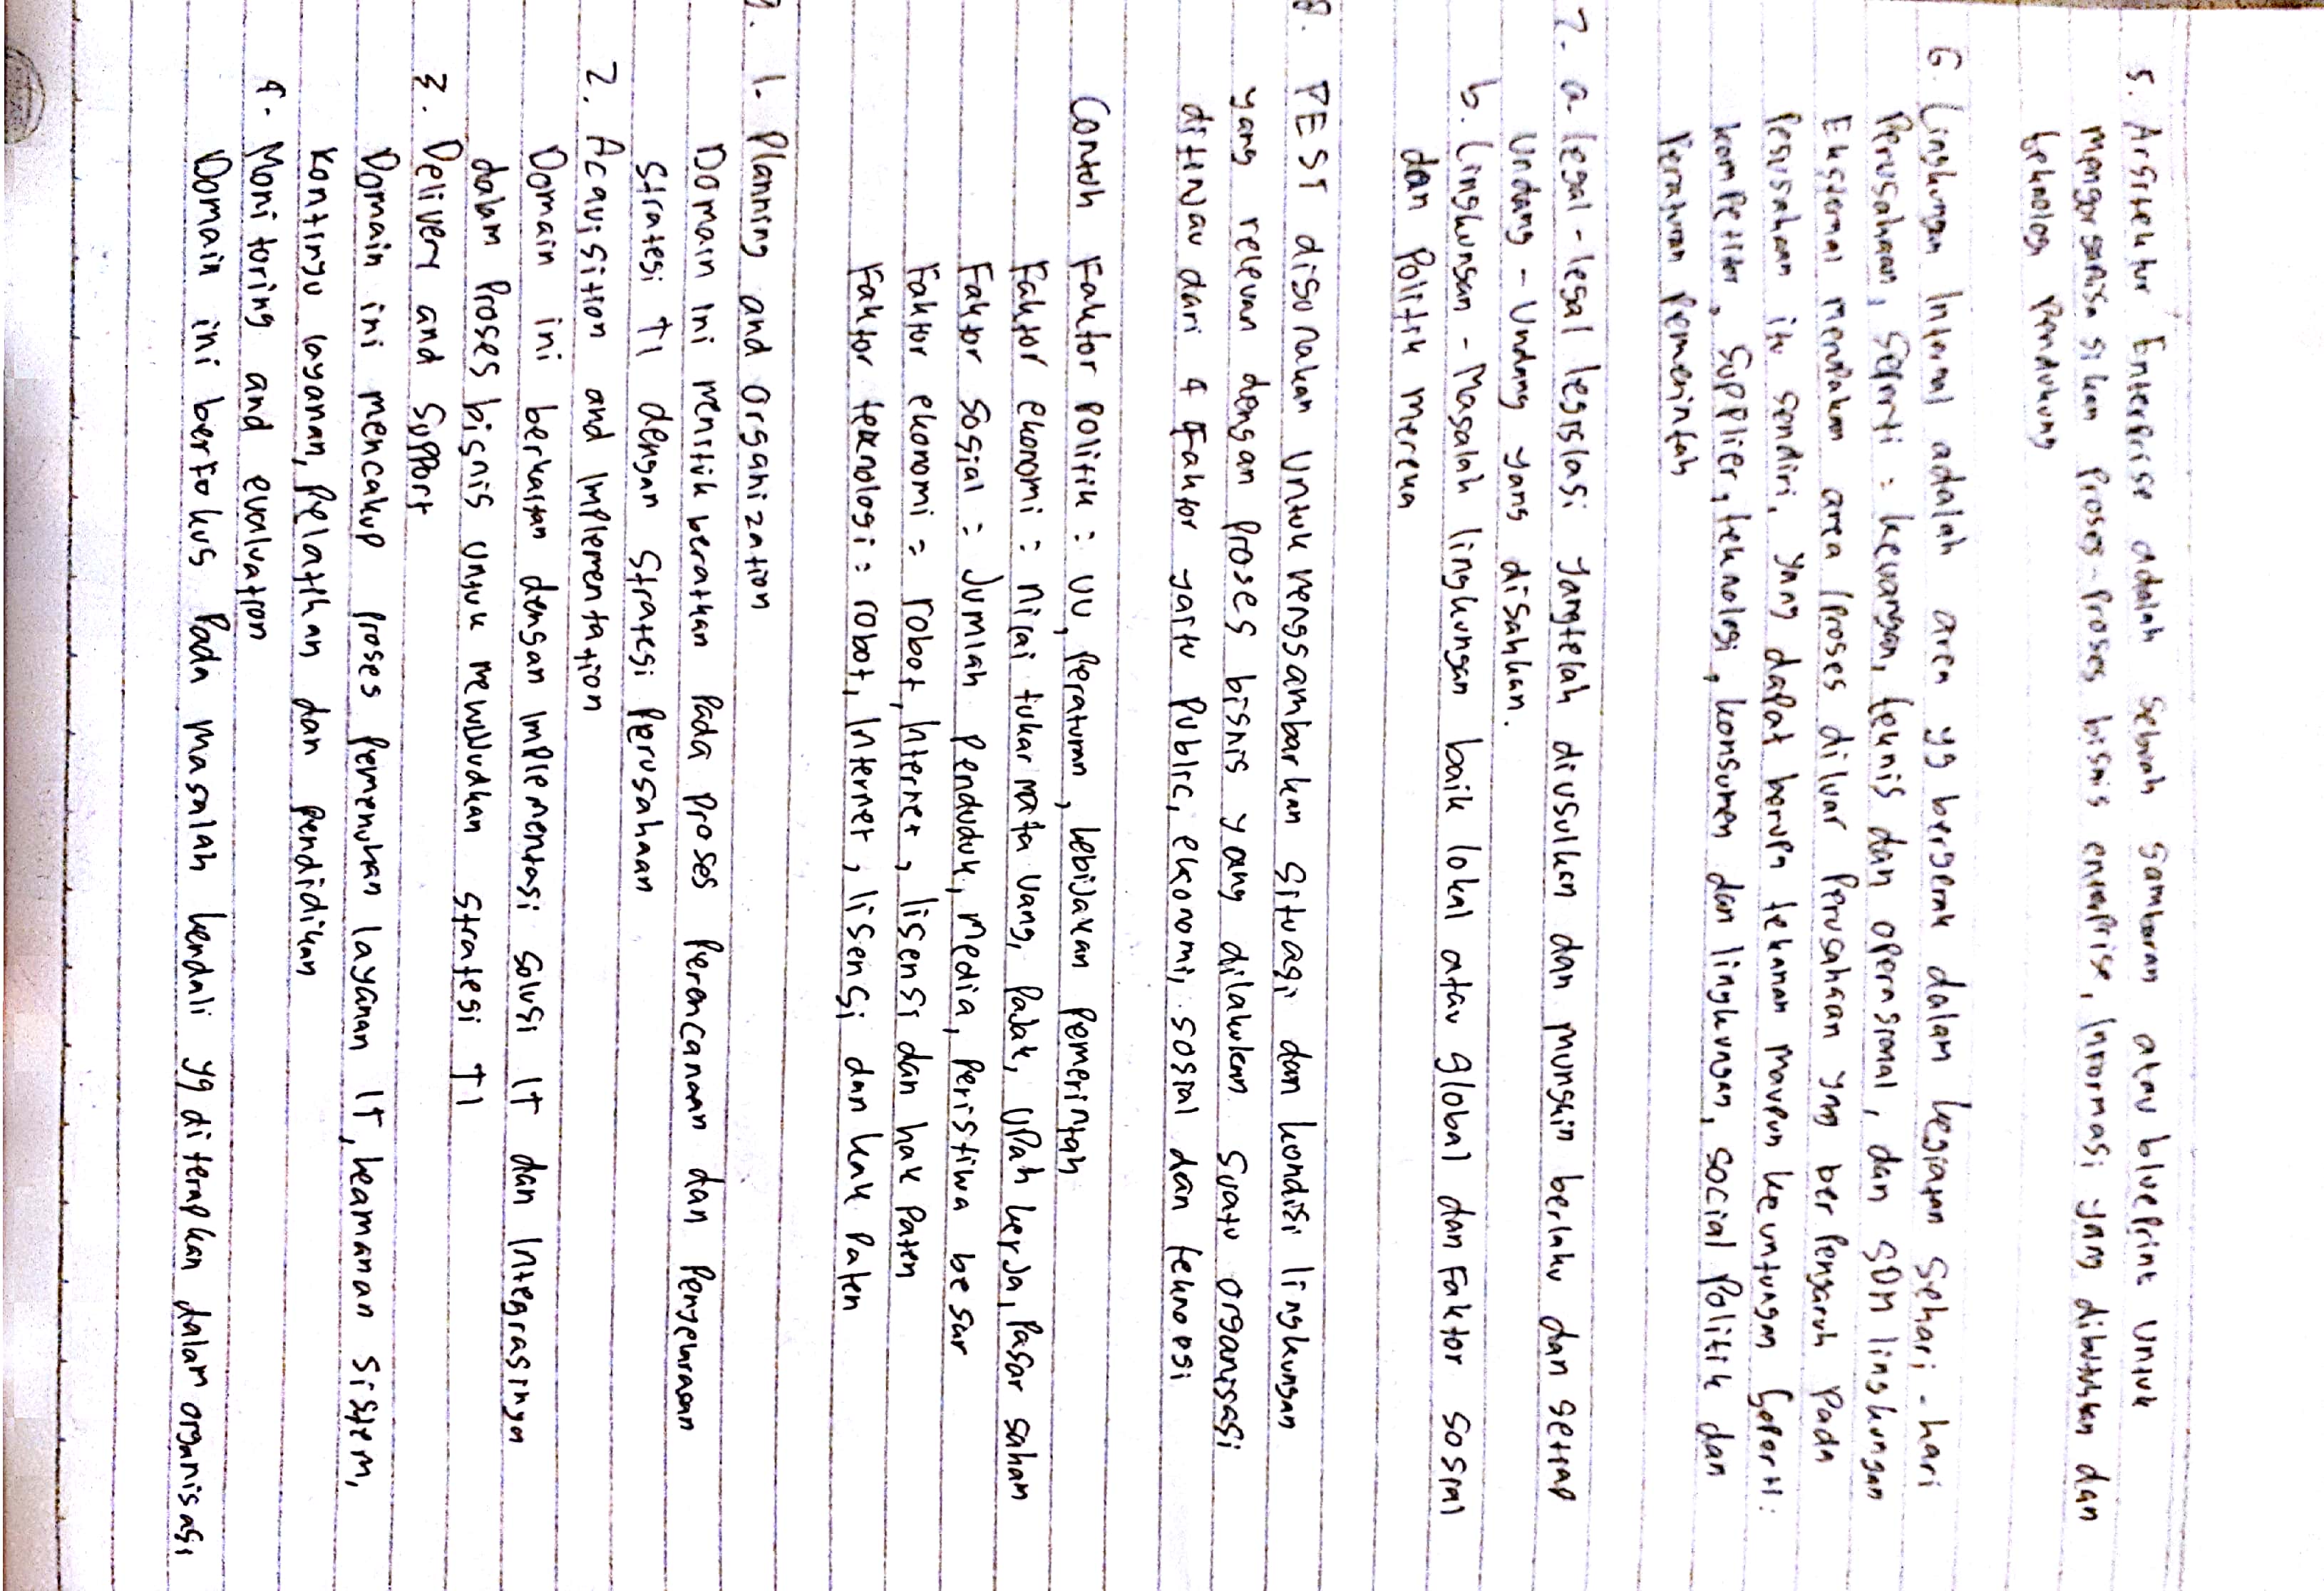 5. Arsitektur Enterprise adalah sebuah gambaran atau blueprint untuk
mengorganisasikan proses-proses bisnis enterprise, Informasi yang dibutuhkan dan
teknologi pendukung
6. Lingkungan Internal adalah area yg bergerak dalam kegiatan sehari-hari
Perusahaan, seperti : keuangan, teknis dan operasional, dan SDM lingkungan
Eksternal merupakan area /proses diluar Perusahaan yng ber pengaruh pada
Pesusahaan itu sendiri, yang dapat berupa tekanan maupun keuntungan seperti :
kompetitor, supplier, teknologi, konsumen dan lingkungan, social politik dan
Peraturan Pemerintah
7. a. legal - legal legislasi yangtelah diusulkan dan mungkin berlaku dan setiap
Undang - Undang yang disahkan.
b. Lingkungan - Masalah lingkungan baik lokal atau global dan Faktor sosial
dan Politik mereka
8. PEST digunakan untuk menggambarkan situasi dan kondisi lingkungan
yang relevan dengan proses bisnis yang dilakukan suatu organisasi
ditinjau dari 4 Faktor yaitu Public, ekonomi, sosial dan teknoogi
Contoh Faktor politik : UU, Peraturan, kebijakan pemerintah
Faktor ekonomi : nilai tukar mata uang, Pajak, Upah kerja, Pasar saham
Faktor sosial : Jumlah penduduk, media, peristiwa besar
Faktor ekonomi : robot, Internet, lisensi dan hak Paten
Faktor teknologi : robot, Internet, lisensi dan kak Paten
9. 1. Planning and Organization
Domain ini menitik beratkan pada proses Perencanaan dan Penyelarasan
strategi TI dengan strategi Perusahaan
2. Acquisition and Implementation
Domain ini berkaitan dengan implementasi solusi IT dan Integrasinya
dalam Proses bisnis untuk mewujudkan strategi TI
3. Delivery and Support
Domain ini mencakup proses pemenuhan layanan IT, keamanan sistem,
Kontinyu layanan, pelatihan dan pendidikan
4. Monitoring and evaluation
Domain ini berfokus Pada masalah kendali yg diterapkan dalam organisasi